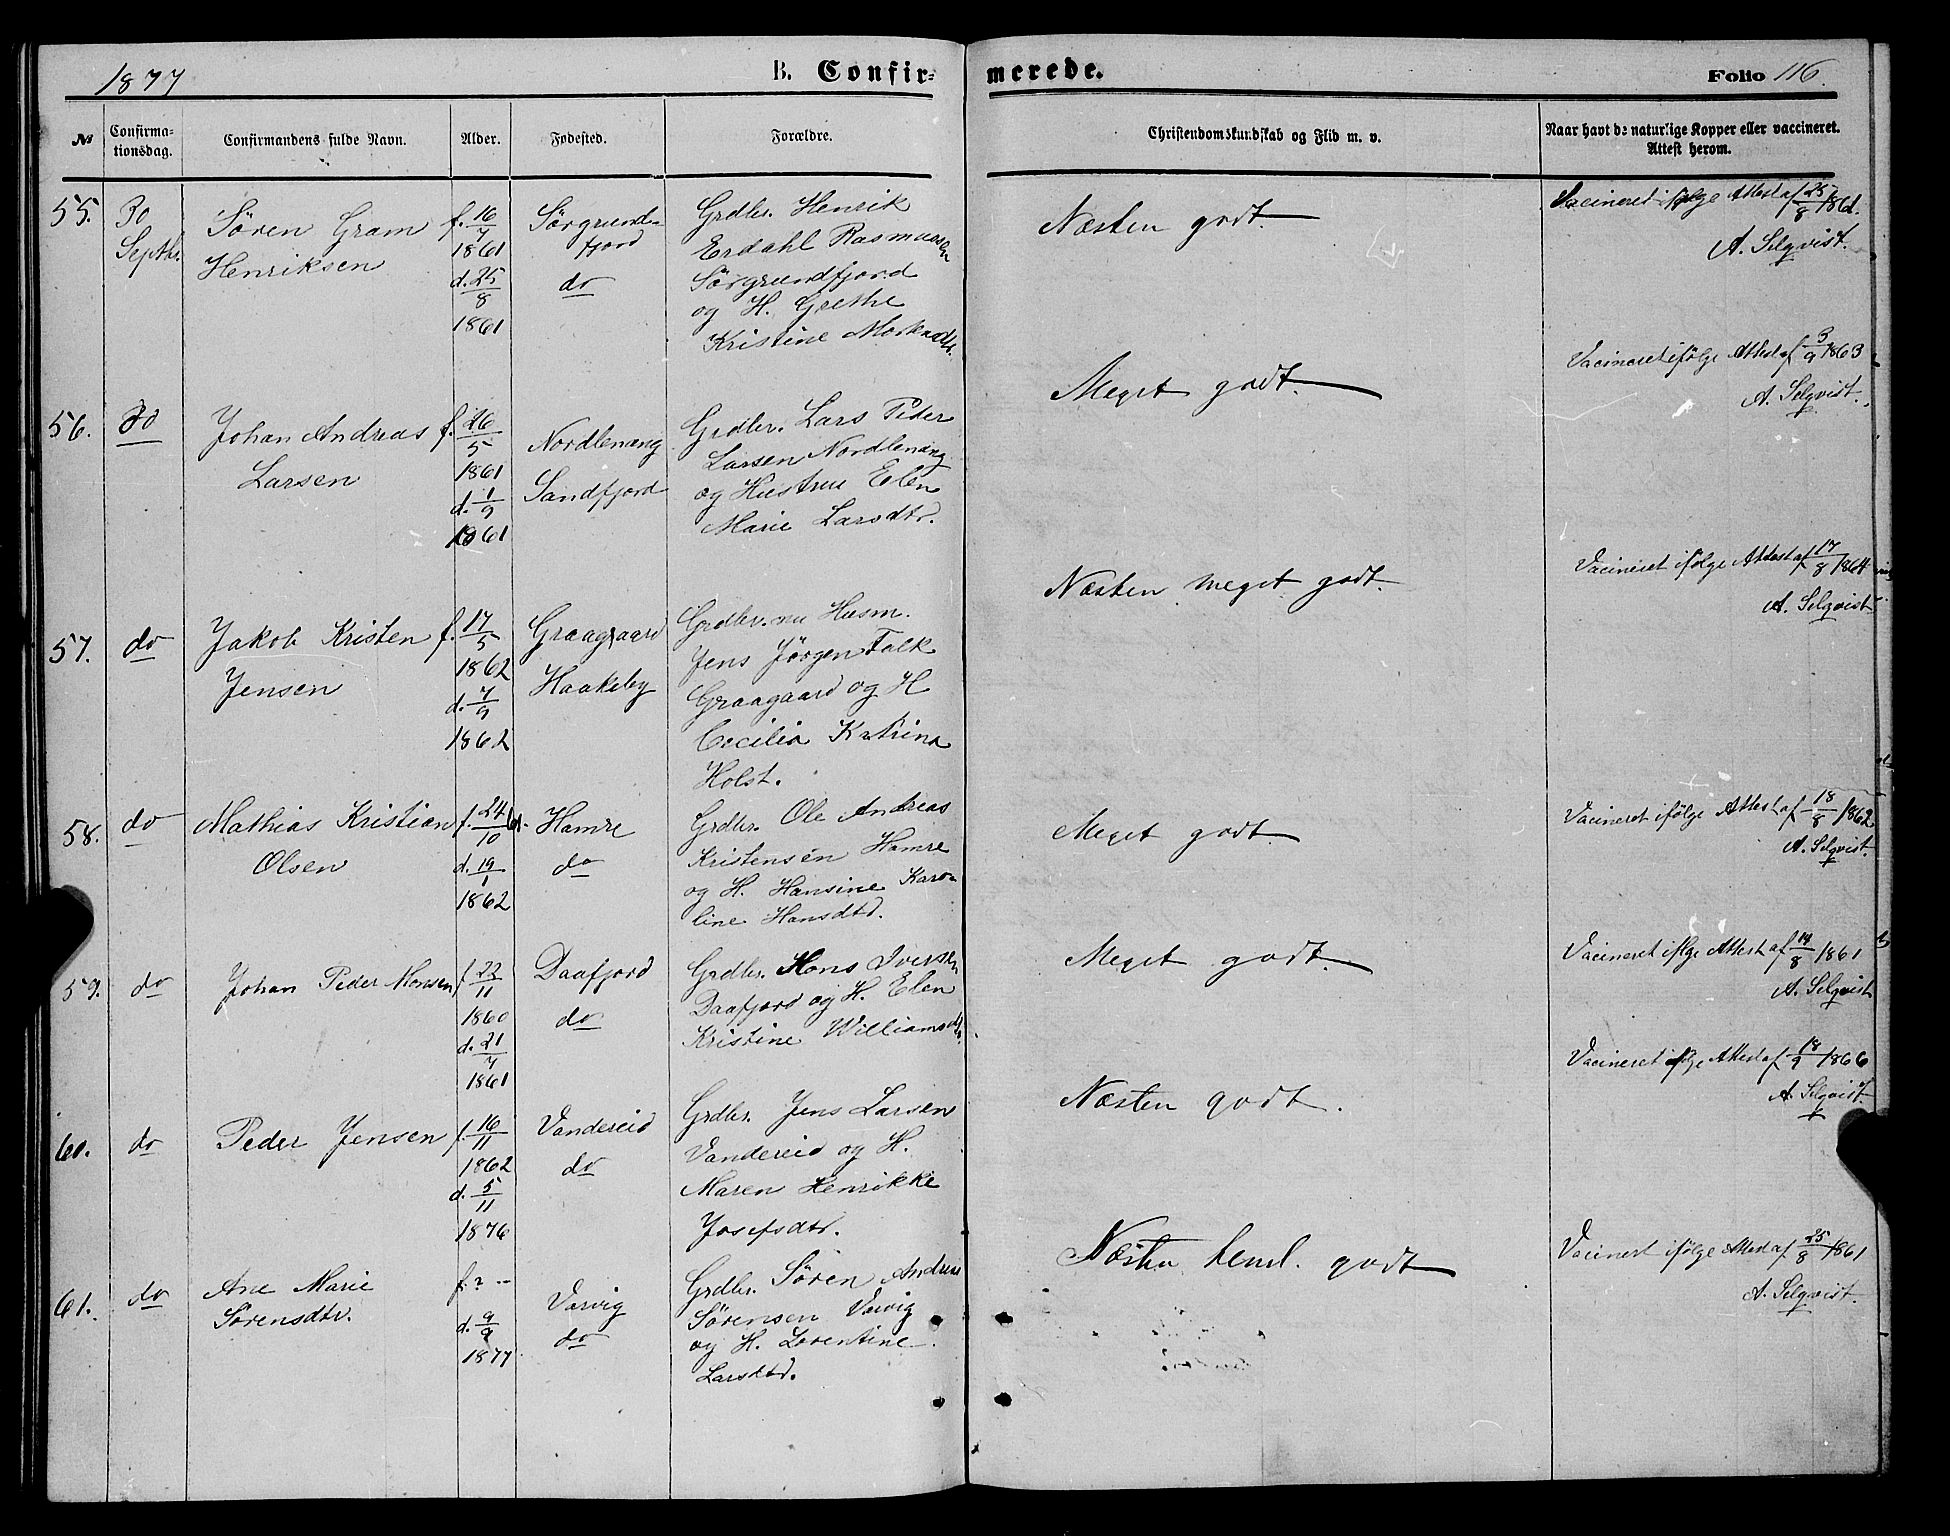 1877
B. Confir=
merede.
Folio 116
No
Confirma=
tionsdag.
Confirmandens fulde Navn.
Alder.
Fødested.
Forældre.
Christendomskundskab og Flid m. v.
Naar havt de naturlige Kopper eller vaccineret.
Attest herom.
55.
30
Septbr.
Sören Gram
Henriksen
f. 16/7
1861
d. 25/8
1861
Sörgrund-
fjord
do
Grdbr. Henrik
Erdahl Rasmussen
Sörgrundfjord
og H. Grethe
Kristine
Næsten godt.
Vacineret ifølge Attest af 25/8 1861.
A. Selqvist.
56.
do
Johan Andreas
Larsen
f. 26/5
1861
d. 1/9
1861
Nordlenang
Sandfjord
Grdbr. Lars Peder
Larsen Nordlenang
og Hustru Elen
Marie Larsdtr.
Meget godt.
Vacineret ifølge Attest af 3/9 1863
A. Selqvist.
57.
do
Jakob Kristen
Jensen
f. 17/5
1862
d. 7/9
1862
Graagaard
Haakeby
Grdbr. nu Husm.
Jens Jörgen Falk
Graagaard og H
Cecilia Katrina
Holst.
Næsten meget godt.
Vacineret ifølge Attest af 17/8 1864
A. Selqvist
58.
do
Mathias Kristian
Olsen
f. 24/10 61.
d. 19/1
1862
Hamre
do
Grdbr. Ole Andreas
Kristensen Hamre
og H. Hansine Karo-
line Hansdtr.
Meget godt.
Vacineret ifølge Attest af 18/8 1862
A. Selqvist.
59.
do
Johan Peder Monsen
f. 22/11
1860
d. 21/7
1861
Daafjord
do
Grdbr. Mons Iversen
Daafjord og H. Elen
Kristine Williamsdtr.
Meget godt.
Vacineret iflge Attest af 19/8 1861
A. Selqvist
60.
do
Peder Jensen
f. 16/11
1862
d. 5/11
1876
Vandereid
do
Grdbr. Jens Larsen
Vandereid og H.
Maren Henrikke
Josefsdtr.
Næsten godt.
Vacineret iflge Attest af 18/9 1866
A. Selqvist
61.
do
Ane Marie
Sörensdtr.
f. ? --
d. 9/9
1877
Varvig
do
Grdbr. Sören Andreas
Sörensen Varvig
og H. Lorentine
Larsdtd.
Næsten temml. godt
Vacineret ifølge Attest af 25/8 1861
A. Selqvist.